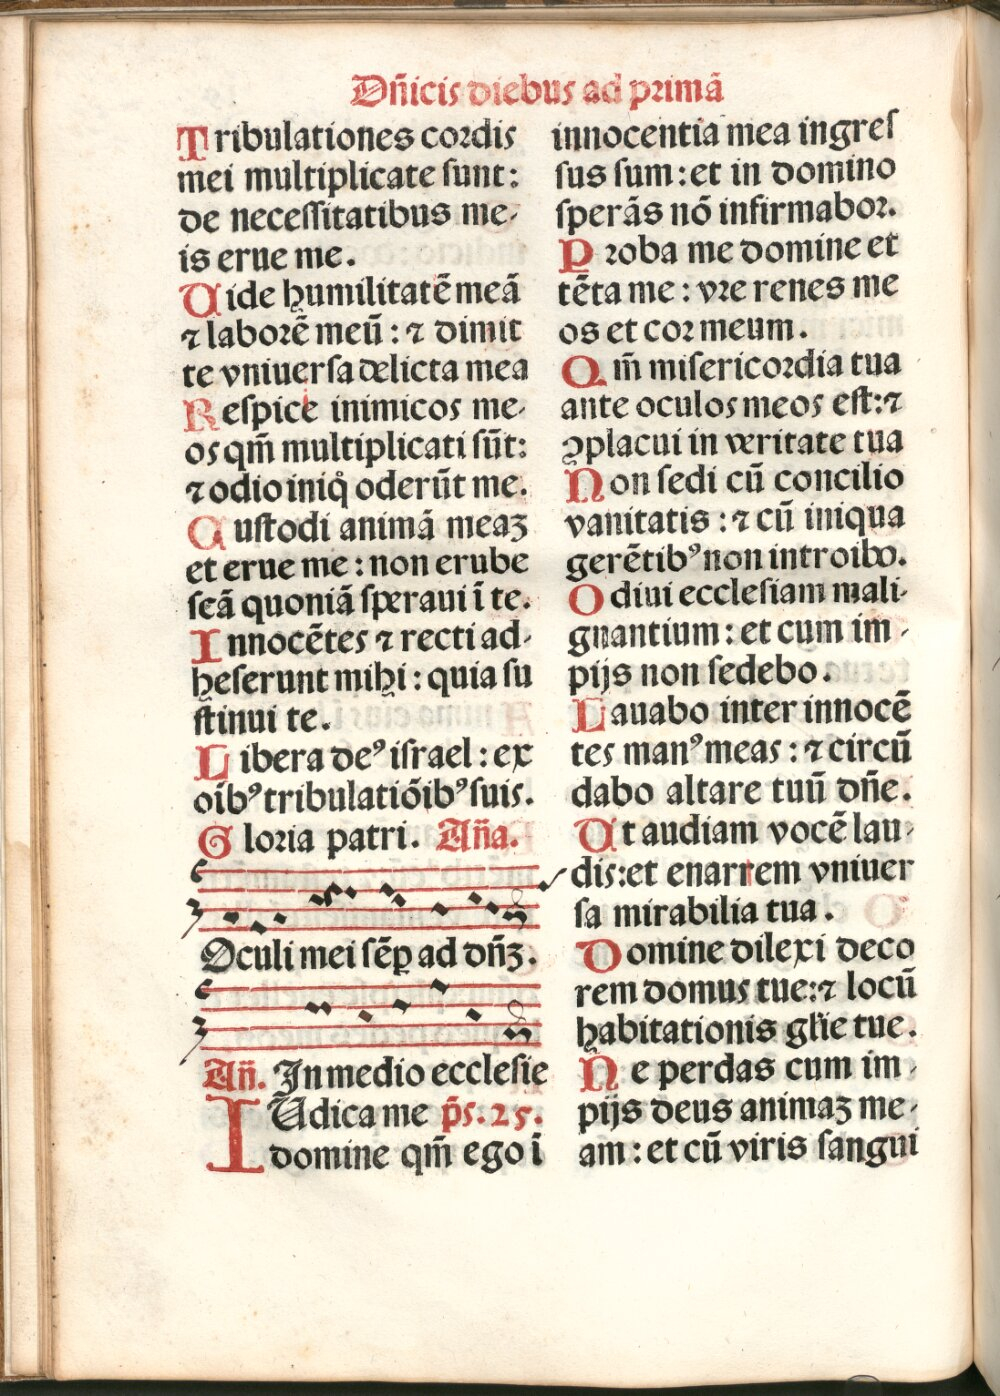 Dn̄icis diebus ad primā
Tribulationes cordis
mei multiplicate sunt:
de necessitatibus me-
is erue me.
Uide humilitatē meā
⁊ laborē meū : ⁊ dimit
te vniuersa delicta mea
Respice inimicos me-
os qm̄ multiplicati sūt:
⁊ odio iniq̊ oderūt me.
Custodi animā meaꝫ
et erue me : non erube
scā quoniā speraui ī te.
Innocētes ⁊ recti ad-
heserunt mihi : quia su
stinui te.
Libera deꝰ israel : ex
oīb⁹ tribulatiōib⁹ suis.
Gloria patri. Aña.
Oculi mei sēꝑ ad dn̄ꝫ.
An̄. In medio ecclesie
IUdica me ps̄. 25.
domine qm̄ ego ī
innocentia mea ingres
sus sum : et in domino
sperās nō infirmabor.
Proba me domine et
tēta me : vre renes me
os et cor meum.
Qm̄ misericordia tua
ante oculos meos est: ⁊
ꝯplacui in veritate tua
Non sedi cū concilio
vanitatis : ⁊ cū iniqua
gerētib⁹ non introibo.
Odiui ecclesiam mali-
gnantium : et cum im-
pijs non sedebo.
Lauabo inter innocē
tes man⁹ meas : ⁊ circū
dabo altare tuū dn̄e.
Ut audiam vocē lau-
dis: et enarrem vniuer
sa mirabilia tua.
Domine dilexi deco
rem domus tue: ⁊ locū
habitationis gl̄ie tue.
Ne perdas cum im-
pijs deus animaꝫ me-
am : et cū viris sangui